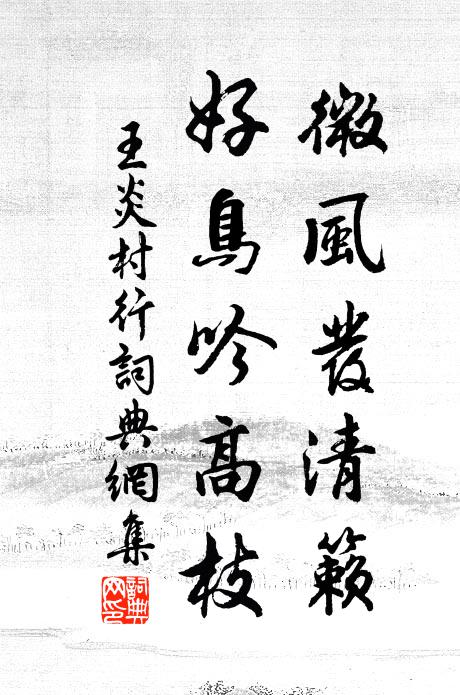 微風發清籟
好鳥吟高枝
王炎村行詞典網集
詞典網印